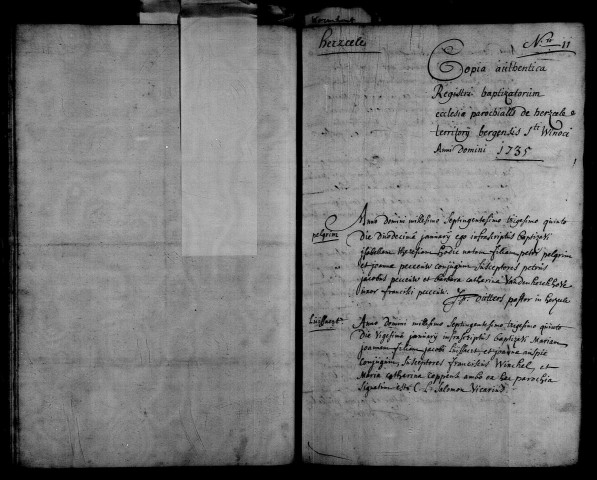 herzeele
N.º 11
Copia authentica
Registri baptizatorum
ecclesiæ parochialis de herzeele
territorij bergensis Sti Winoci
Anni domini 1735
pelgrim
Anno domini millesimo septingentesimo trigesimo quinto
die duodecima januarij ego infrascriptus baptizavi
isabellam theresiam hodie natam filiam petri pelgrim
et joannæ conjugum, susceptores petrus
jacobus et barbara catharina Vandenkerckhove
uxor francisci
pastor in herzeele
Anno domini millesimo septingentesimo trigesimo quinto
die vigesima januarij infrascriptus baptizavi Mariam
joannam filiam jacobi et joannæ
conjugum, susceptores franciscus Winckel, et
Maria catharina ambo ex hac parochia
signatum erat C. L. Salomon Vicarius